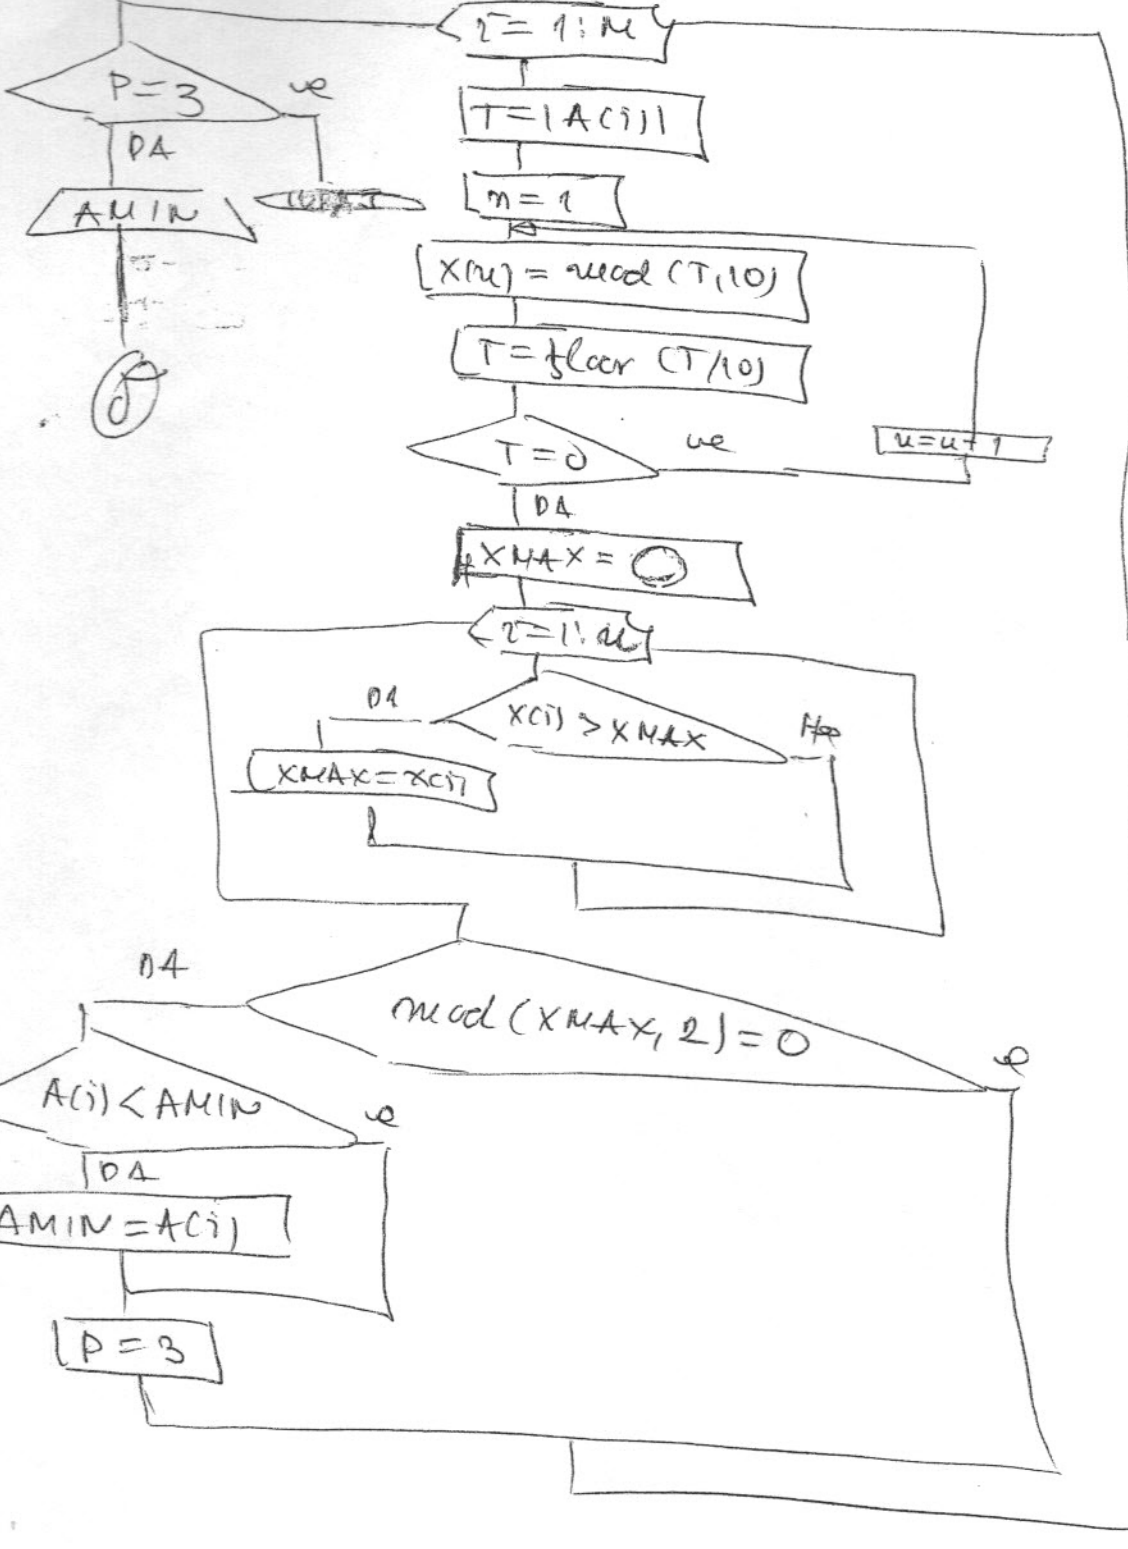 i = 1 : M
P = 3
ne
T = |A(i)|
DA
n = 1
AMIN
X(n) = mod (T,10)
T = floor (T/10)
T = 0
ne
n = n + 1
DA
XMAX = 0
i = 1 : n
DA
X(i) > XMAX
XMAX = X(i)
DA
mod (XMAX, 2) = 0
A(i) < AMIN
ne
DA
AMIN = A(i)
P = 3